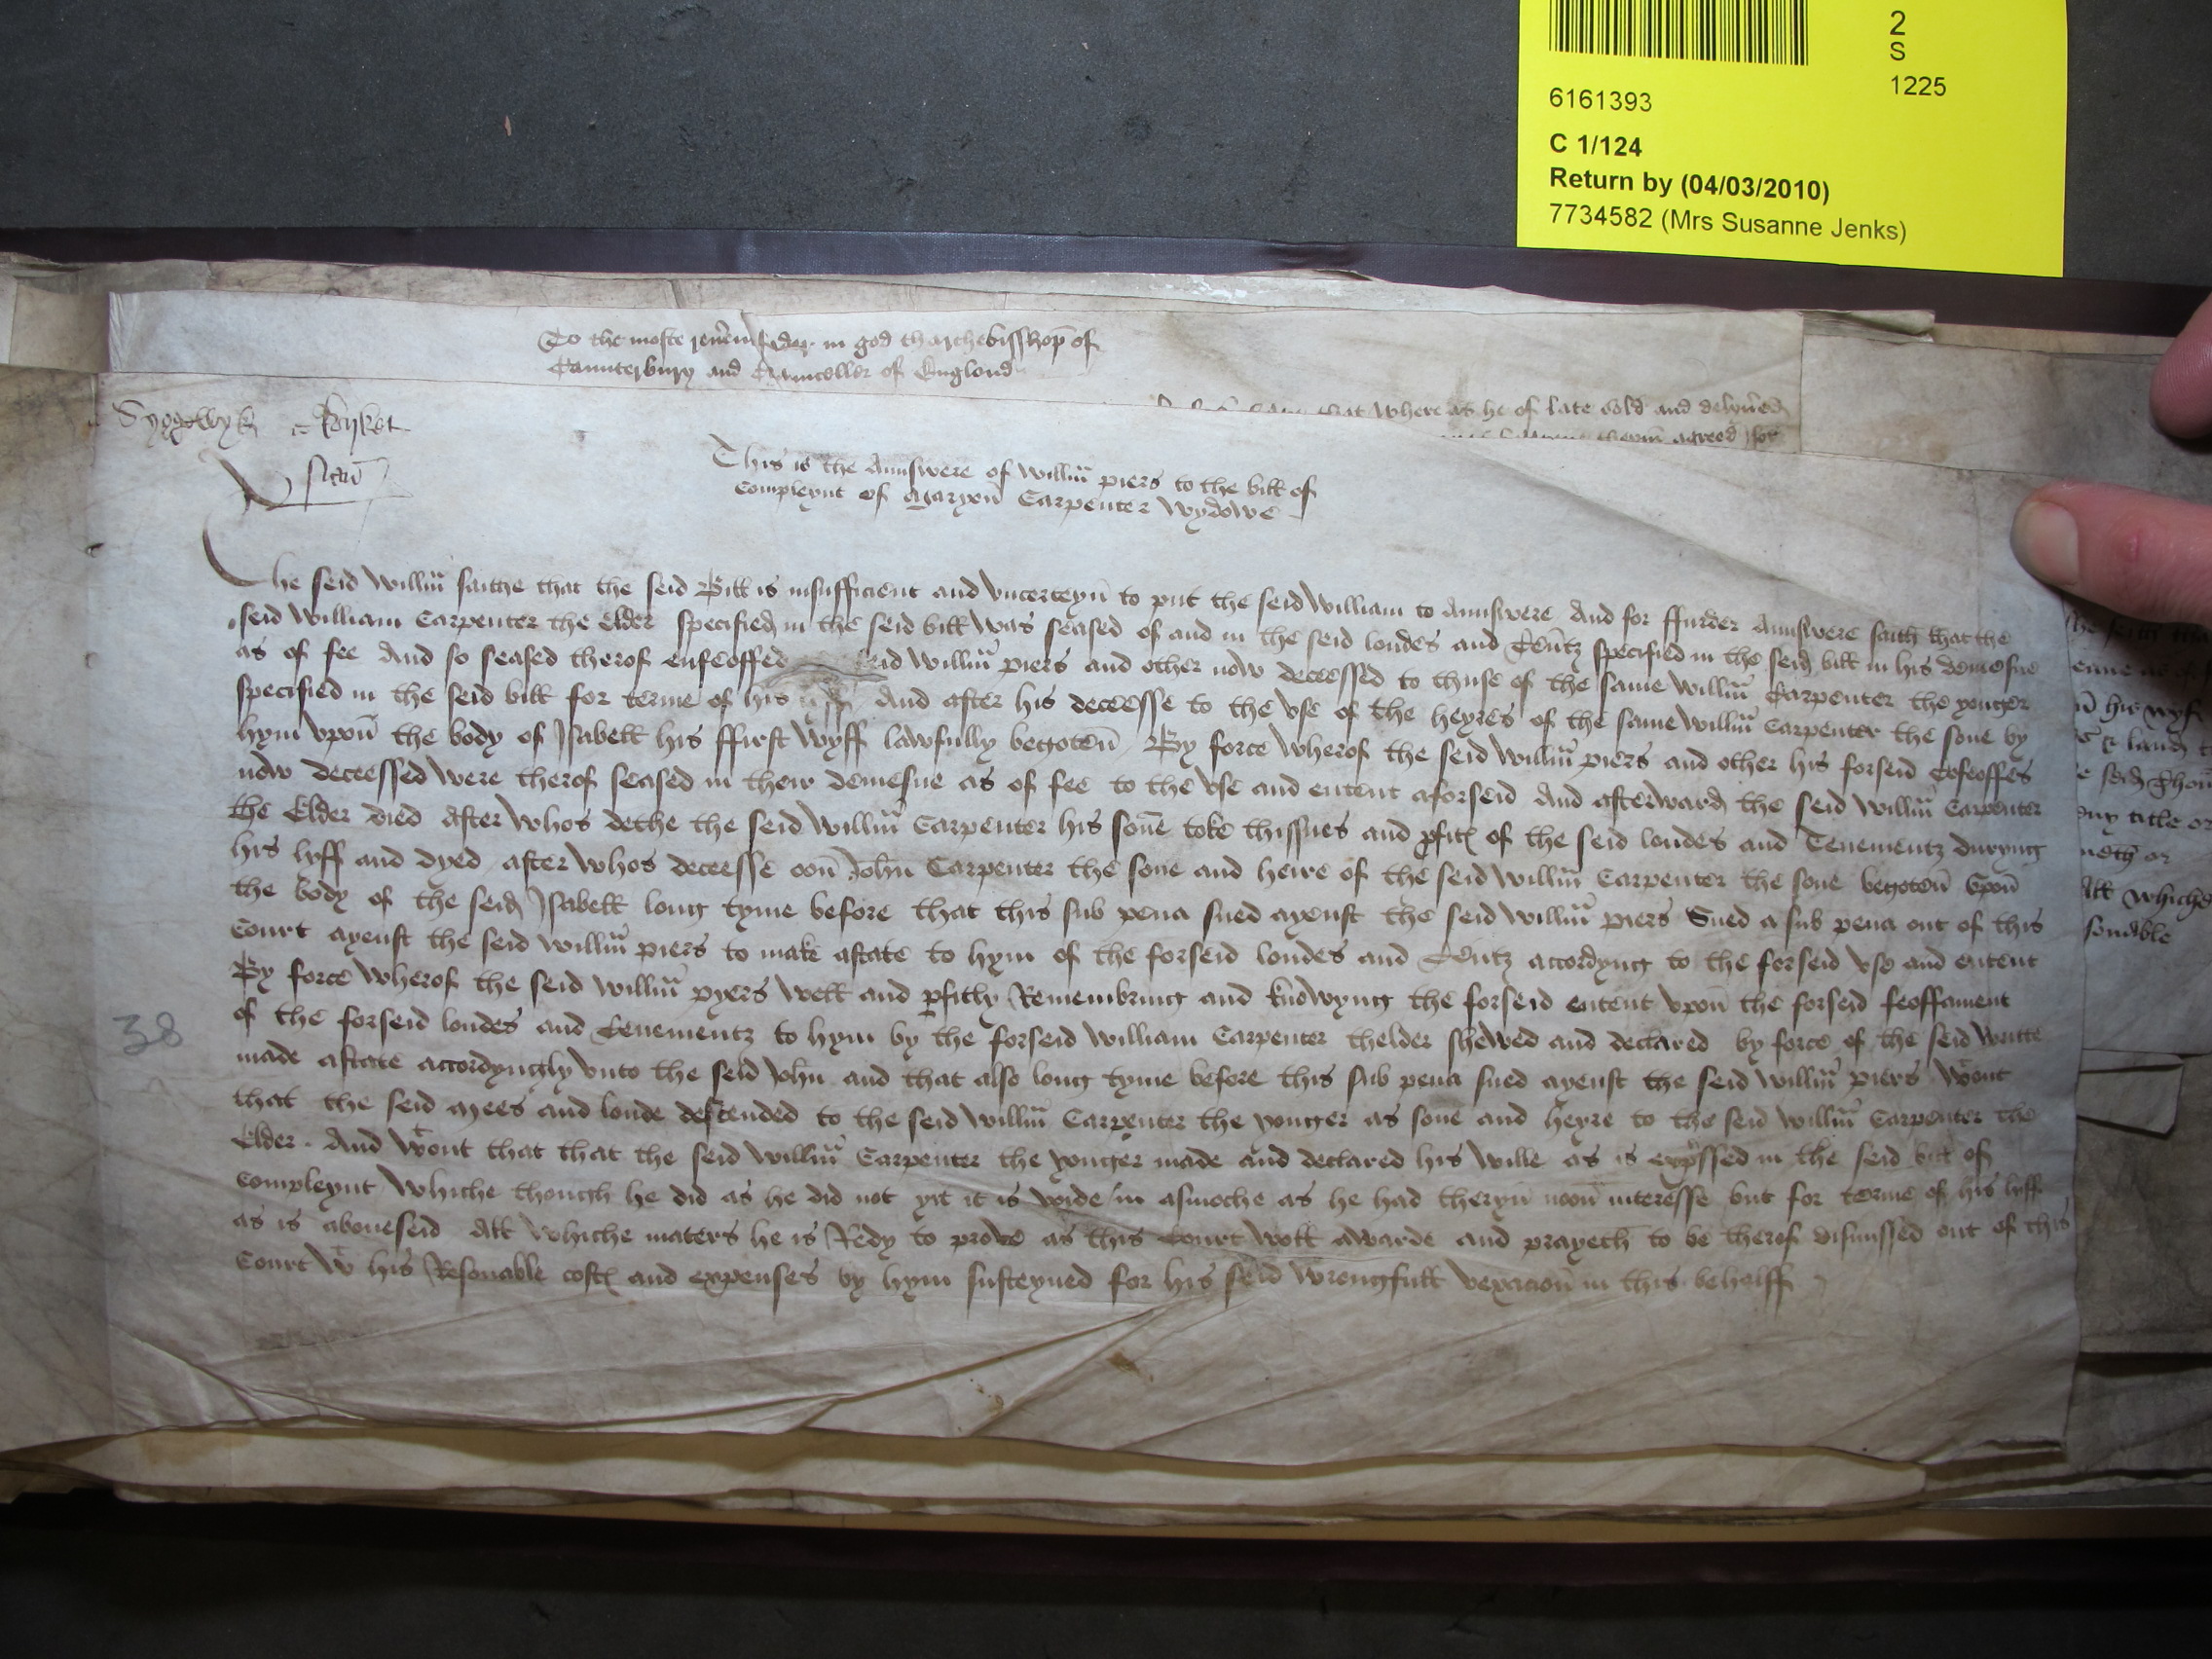 2
S
1225
6161393
C 1/124
Return by (04/03/2010)
7734582 (Mrs Susanne Jenks)
To the moste in god tharchebisshop of
Caunterbury and Chaunceller of Englond
that where as he of late sold and delyũed
agreed for
This is the Aunswere of Willm̃ piers to the bill of
compleynt of Maryon̄ Carpenter Wydowe
The seid Willm̃ saithe that the seid Bill is insufficient and vncerteyn̄ to put the seid William to Aunswere And for ffurder Aunswere saith that the
seid William Carpenter the elder specified in the seid bill was seased of and in the seid londes and Teñtz specified in the seid bill in his demesne
as of fee And so seased therof enfeoffed seid Willm̃ piers and other now decessed to thuse of the same Willm̃ Carpenter the yonger
specified in the seid bill for terme of his And after his decesse to the vse of the heyres of the same Willm̃ Carpenter the sone by
hym vpon̄ the body of Isabell his ffirst wyff lawfully begoten̄ By force wherof the seid Willm̃ piers and other his forseid Cofeoffes
now decessed were therof seased in their demesne as of fee to the vse and entent aforseid And afterward the seid Willm̃ Carpenter
the Elder died After whos dethe the seid Willm̃ Carpenter his sone toke thissues and p̱fitȝ of the seid londes and Tenementz duryng
his lyff and dyed after whos decesse oon̄ John̄ Carpenter the sone and heire of the seid Willm̃ Carpenter the sone begoten̄ vpon̄
the body of the seid Isabell long tyme before that this sub pena sued ayenst the seid Willm̃ piers Sued a sub pena out of this
Court ayenst the seid Willm̃ piers to make astate to hym of the forseid londes and Teñtz accordyng to the forseid vse and entent
By force wherof the seid Willm̃ pyers well and p̱fitly Remembring and knowyng the forseid entent vpon̄ the forseid feoffament
of the forseid londes and Tenementz to hym by the forseid William Carpenter thelder shewed and declared by force of the seid writte
made astate accordyngly vnto the seid John̄ and that also long tyme before this sub pena sued ayenst the seid Willm̃ piers wᵗout
that the seid mees and londe descended to the seid Willm̃ Carpenter the yonger as sone and heyre to the seid Willm̃ Carpenter the
Elder. And wᵗout that that the seid Willm̃ Carpenter the yonger made and declared his wille as is exp̃ssed in the seid bill of
compleynt whiche though he did as he did not yit it is voide in asmoche as he had theryn̄ noon̄ interesse but for terme of his lyff
as is aboueseid All whiche maters he is Redy to prove as this Court woll awarde and prayeth to be therof dismissed out of this
Court wᵗ his Resonable costȝ and expenses by hym susteyned for his seid wrongfull vexacion̄ in this behalff
38
his wyf
title or
All whiche